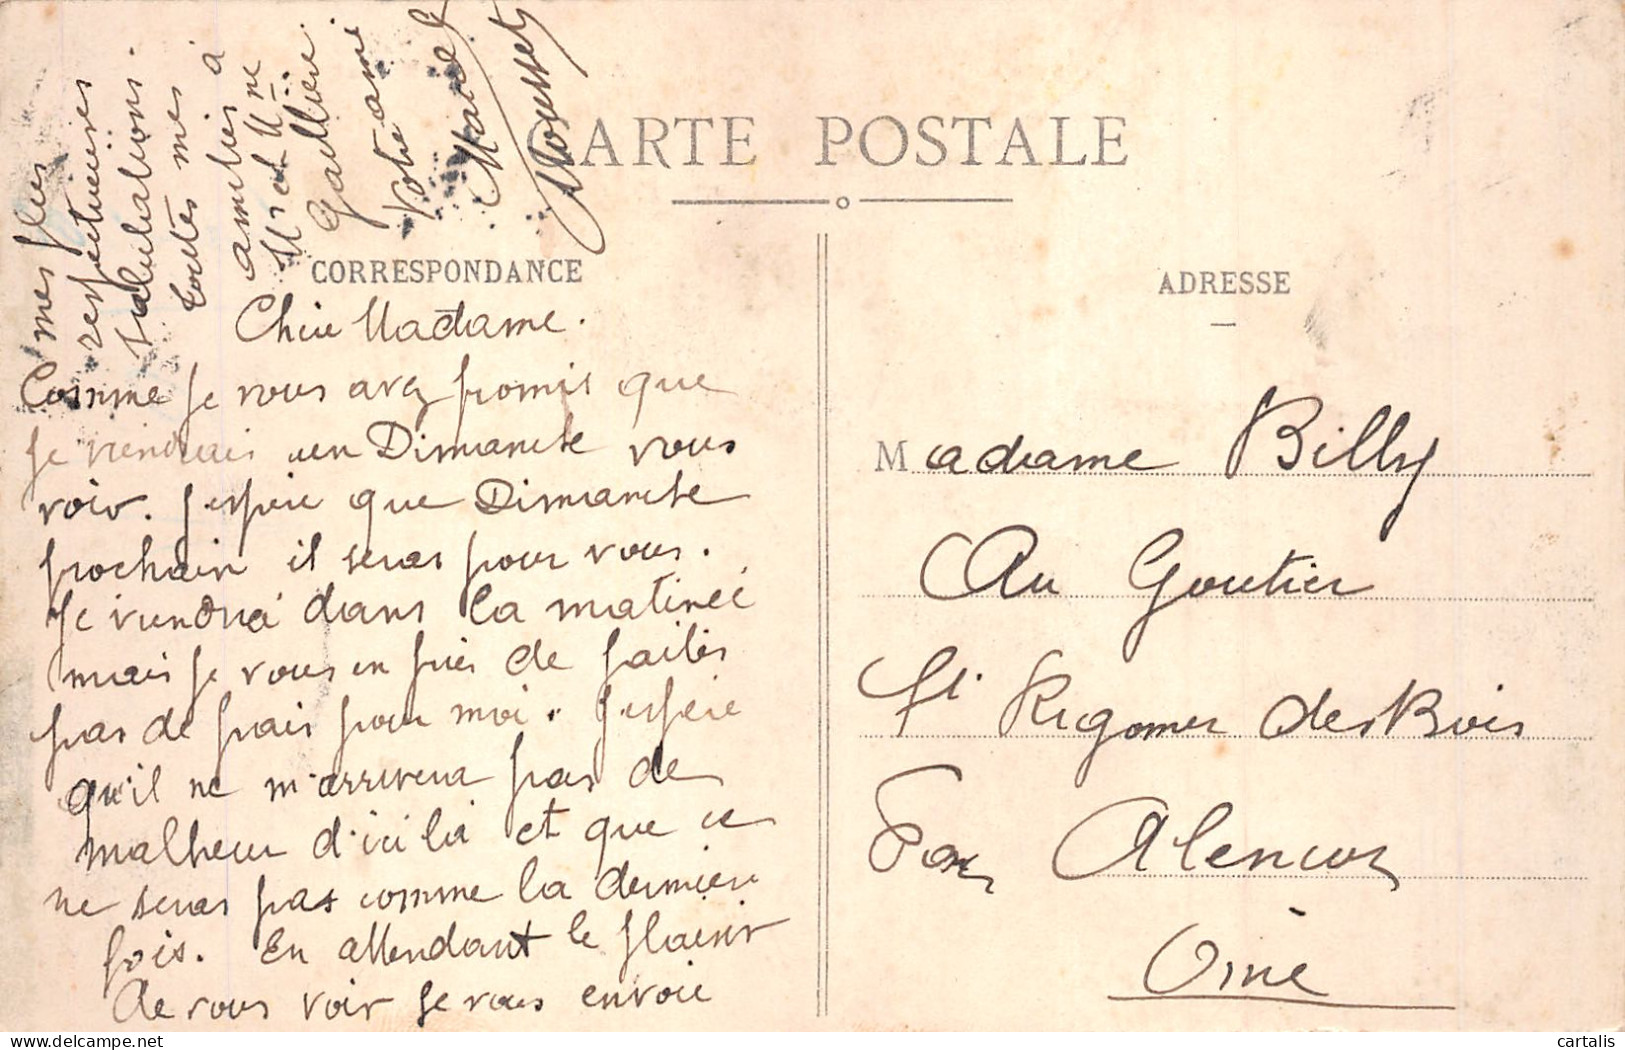 CARTE POSTALE
CORRESPONDANCE
Chère Madame.
Comme je vous avez promis que
je viendrais un Dimanche vous
voir. j'espère que Dimanche
prochain il seras pour vous.
Je viendrai dans la matinée
mais je vous en pries de faites
pas de frais pour moi. j'espère
qu'il ne m'arrivera pas de
malheur d'ici là et que ce
ne seras pas comme la dernière
fois. En attendant le plaisir
de vous voir je vous envoie
mes plus
respectueuses
salutations.
toutes mes
amitiés à
Mr et Mme
Votre amie
Marcelle
Mousset
ADRESSE
Madame Billy
Au Goutier
St Rigomer des Bois
Par Alencon
Orne
delcampe.net
cartalis